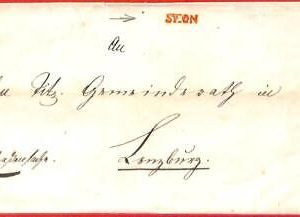 SEON
An
Titz. Gemeinderath in
Lenzburg.